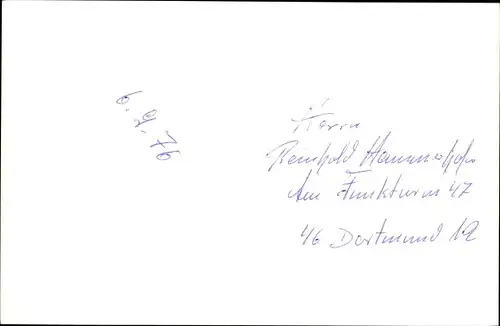 6. 9. 76
Herrn
Reinhold
Am Funkturm 47
46 Dortmund 12